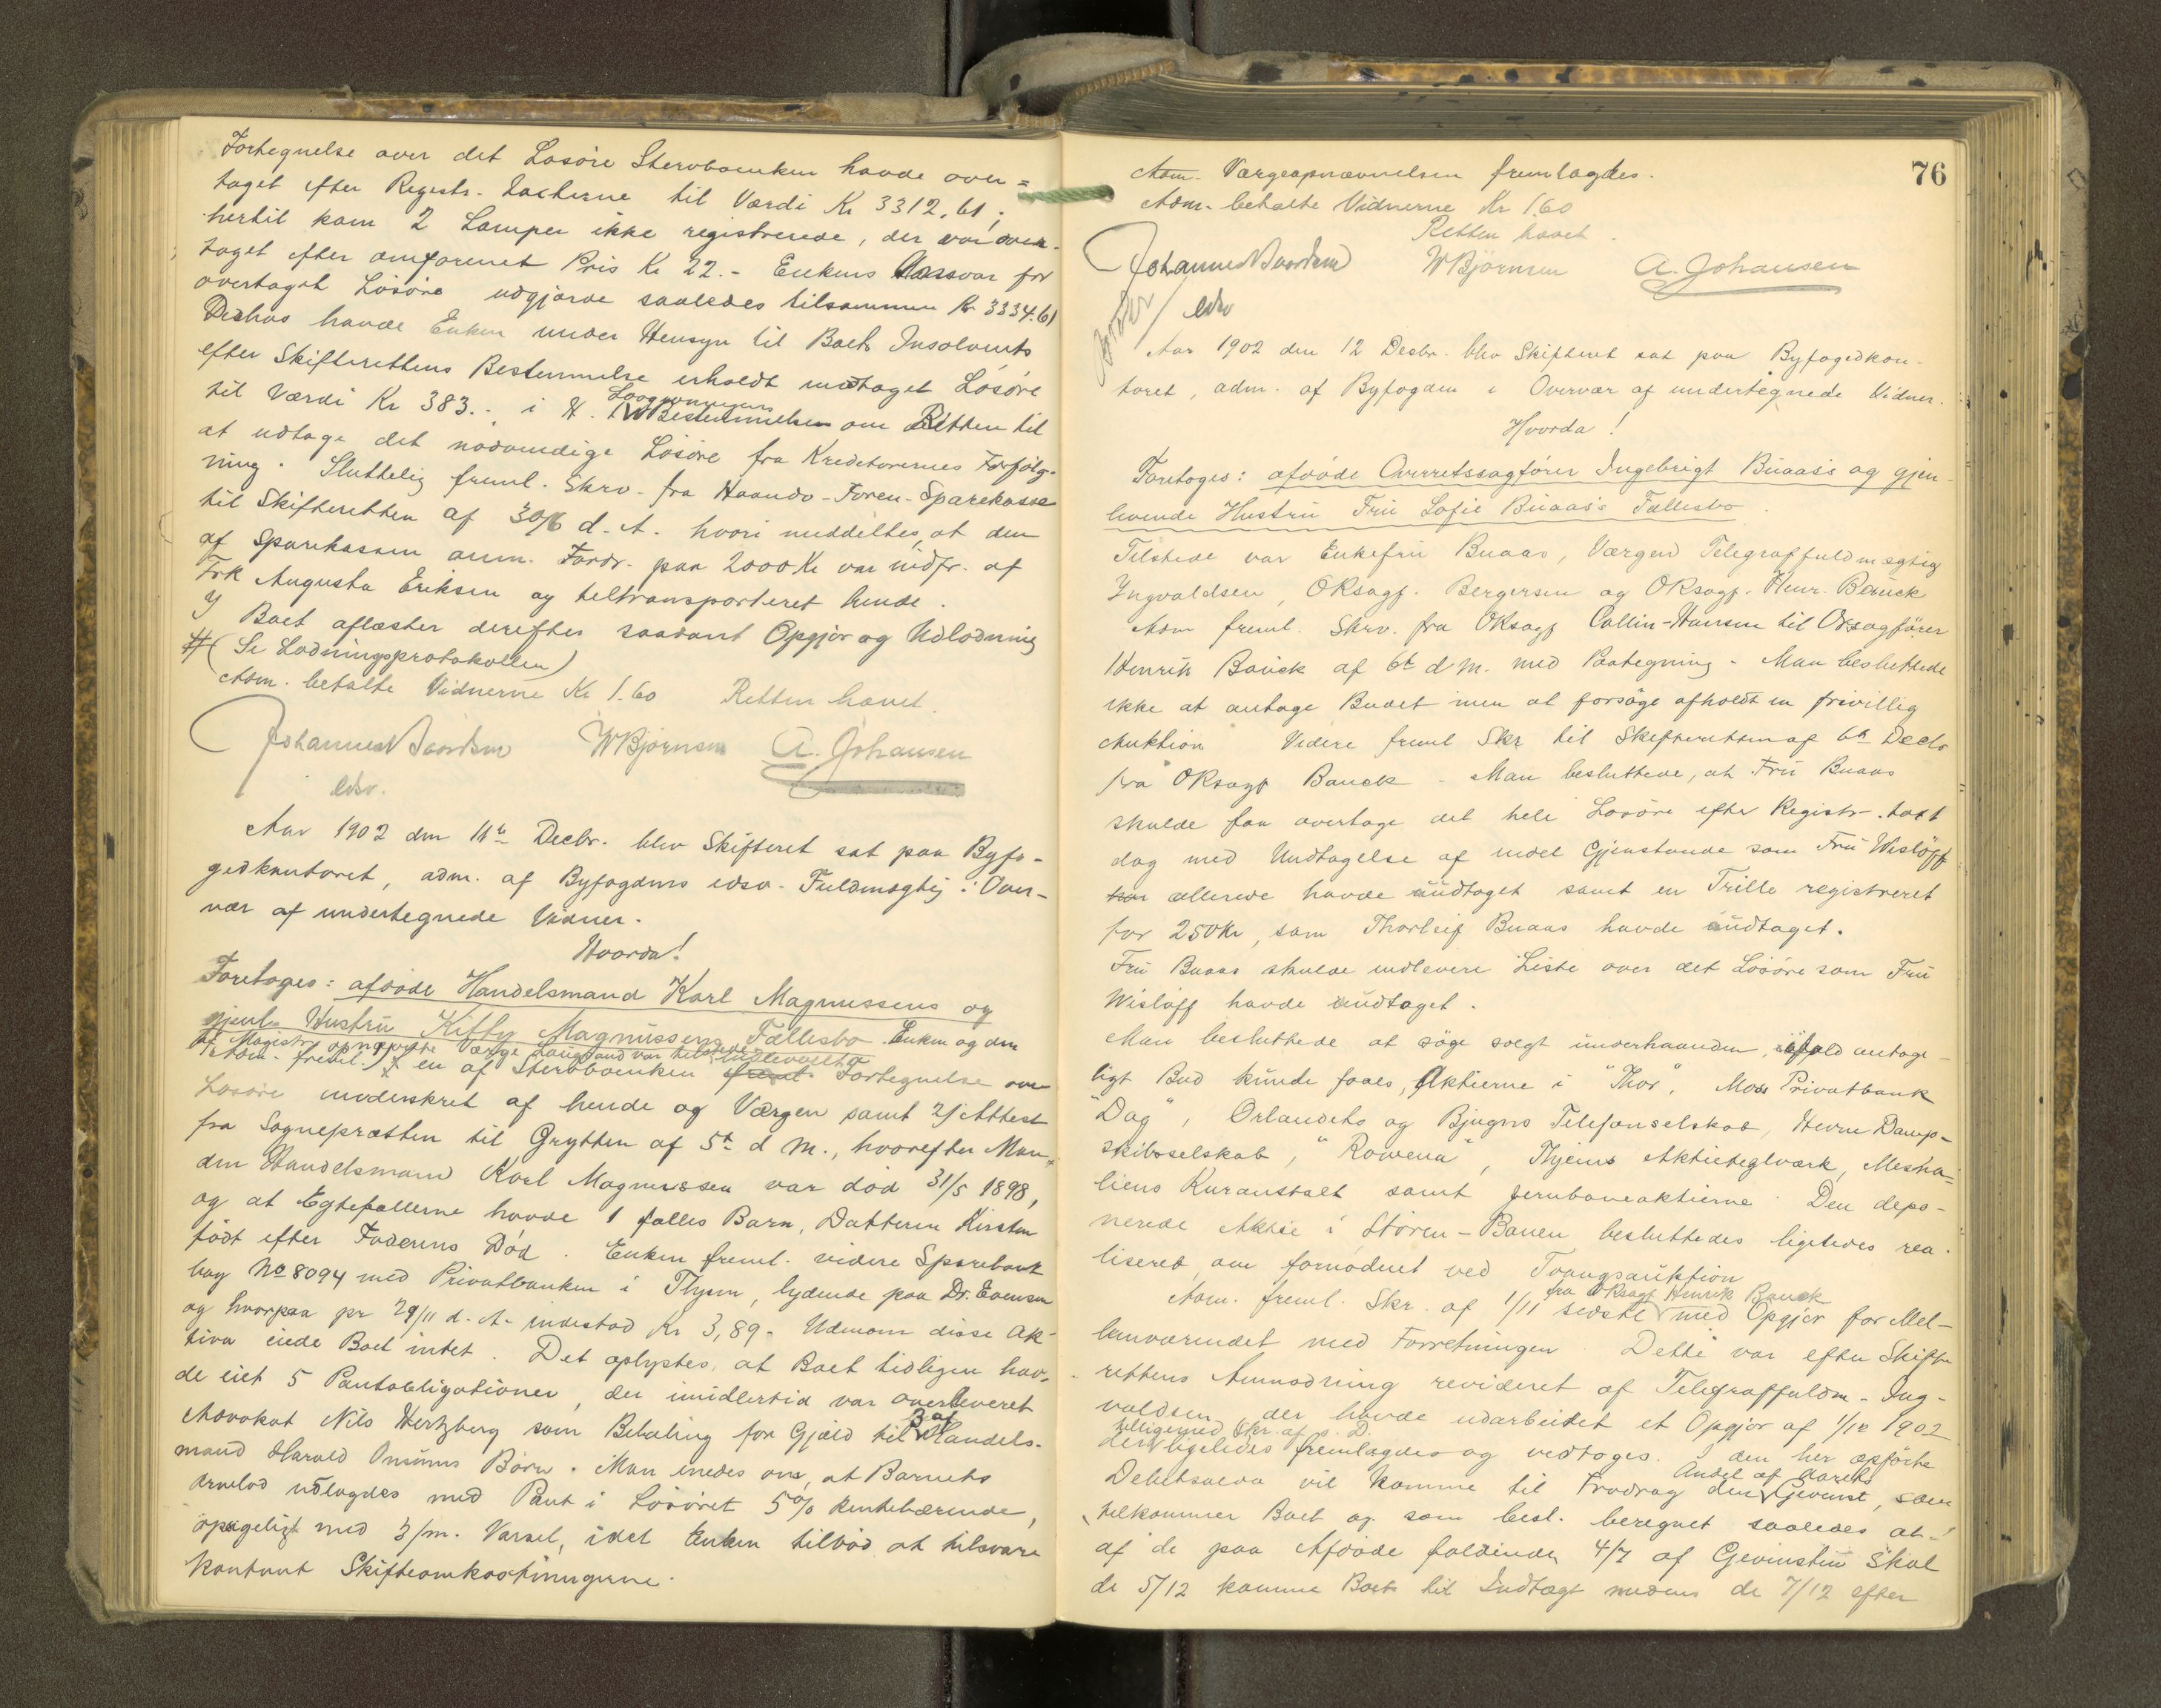 Fortegnelse over det Løsøre Stervboenken havde over=
taget efter Registr. Taxterne til Værdi Kr 3312,61;
hertil kom 2 Lamper ikke registrerede, der var over-
taget efter omforenet Pris Kr 22.- Enkens Ansvar for
overtaget Løsøre udgjorde saaledes tilsammen Kr 3334.61
Deshos havde Enken under Hensyn til Boets Insolvents
efter Skifterettens Bestemmelse erholdt undtaget Løsøre
til Værdi Kr 383.- i H. t. Lovgivningens Bestemmelsen om Retten til
at udtage det nødvendige Løsøre fra Kreditorernes Forfølg-
ning. Sluttelig freml. Skrv. fra Haandv.-Foren.-Sparekasse
til Skifteretten af 30/6 d.A. hvori meddeltes, at den
af Sparekassen anm. Fordr. paa 2000 Kr var indfr. af
Frk Augusta Eriksen og tiltransporteret hende.
I Boet aflæstes derefter saadant Opgjør og Udlodning
# (Se Lodningsprotokollen)
Adm. betalte Vidnerne Kr 1.60 Retten hævet.
Johannes WBjørnsen A. Johansen
edsv.
Aar 1902 den 11te Decbr. blev Skifteret sat paa Byfo-
gedkontoret, adm. af Byfogdens edsv. Fuldmægtig i Over-
vær af undertegnede Vidner.
Hvorda!
Foretoges: afdøde Handelsmand Karl Magnussens og
gjenl. Hustru Kitty Magnussens Fællesbo Enken og den
af Magistr. opnævnte Værge Langsand var tilstede
Adm. freml. 1/ en af Stervboenken indleveret freml. Fortegnelse over
Løsøre underskret af hende og Værgen samt 2/ Attest
fra Sognepræsten til Grytten af 5te d M., hvorefter Man-
den Handelsmand Karl Magnussen var død 31/5 1898,
og at Egtefællerne havde 1 fælles Barn, Datteren Kirsten
født efter Faderens Død. Enken freml. videre Sparebank
bog No 8094 med Privatbanken i Thjem, lydende paa Dr. Evensen
og hvorpaa pr 29/11 d.A. indestod Kr 3,89. Udenom disse Ak-
tiva eiede Boet intet. Det oplystes, at Boet tidligere hav-
de eiet 5 Pantobligationer, der imidlertid var overleveret
Advokat Nils Hertzberg som Betaling for Gjæld til 3 af Handels-
mand Harald Onsums Børn. Man enedes om, at Barnets
Arvelod udlagdes med Pant i Løsøret 5% rentebærende,
opsigeligt med 3/m. Varsel, idet Enken tilbød at tilsvare
kontant Skifteomkostningerne.
76
Adm. Værgeopnævnelsen fremlagdes.
Adm. betalte Vidnerne Kr 1.60
Retten hævet.
Johannes WBjørnsen A. Johansen
edsv
Aar 1902 den 12 Decbr. blev Skifteret sat paa Byfogedkon-
toret, adm. af Byfogden i Overvær af undertegnede Vidner.
Hvorda!
Foretoges: afdøde Overretssagfører Ingebrigt Buaas's og gjen-
levende Hustru Fru Sofie Buaas's Fællesbo.
Tilstede var Enkefru Buaas, Værgen Telegraffuldmægtig
Yngvaldsen, ORsagf. Bergersen og ORsagf. Henr. Bauck
Adm freml. Skrv. fra ORsagf Collin-Hansen til ORsagfører
Henrik Bauck af 6te d M. med Paategning. Man besluttede
ikke at antage Budet men at forsøge afholdt en frivillig
Auktion Videre freml Skr til Skifteretten af 6te Decbr
fra ORsagf Bauck. Man besluttede, at Fru Buaas
skulde faa overtage det hele Løsøre efter Registr. taxt
dog med Undtagelse af endel Gjenstande som Fru Wisløff
allerede havde undtaget samt en Trille registreret
for 250 Kr, som Thorleif Buaas havde undtaget.
Fru Buaas skulde indlevere Liste over det Løsøre som Fru
Wisløff havde undtaget.
Man besluttede at søge solgt underhaanden, ifald antage-
ligt Bud kunde faaes, Aktierne i "Thor", Moss Privatbank
"Dag", Ørlandets og Bjugns Telefonselskab, Hevne Damp-
skibsselskab, "Rowena", Thjems Aktieteglværk, Mesna-
liens Kuranstalt samt Jernbaneaktierne. Den depo-
nerede Aktie i Støren-Banen besluttedes ligeledes rea-
liseret, om fornødent ved Tvangsauktion
Adm. freml. Skr. af 1/11 sidste fra ORsagf Henrik Bauck med Opgjør for Mel-
lemværendet med Forretningen. Dette var efter Skifte-
rettens Anmodning revideret af Telegraffuldm. Ing-
valdsen, der havde udarbeidet et Opgjør af 1/12 1902
der tilligemed Skr. af s. D. ligeledes fremlagdes og vedtoges. I den her opførte
Debetsaldo vil komme til Fradrag den Andel af Aarets Gevinst, som
tilkommer Boet og som besl. beregnet saaledes at
af de paa Afdøde faldende 4/7 af Gevinsten skal
de 5/12 komme Boet til Indtægt medens de 7/12 efter